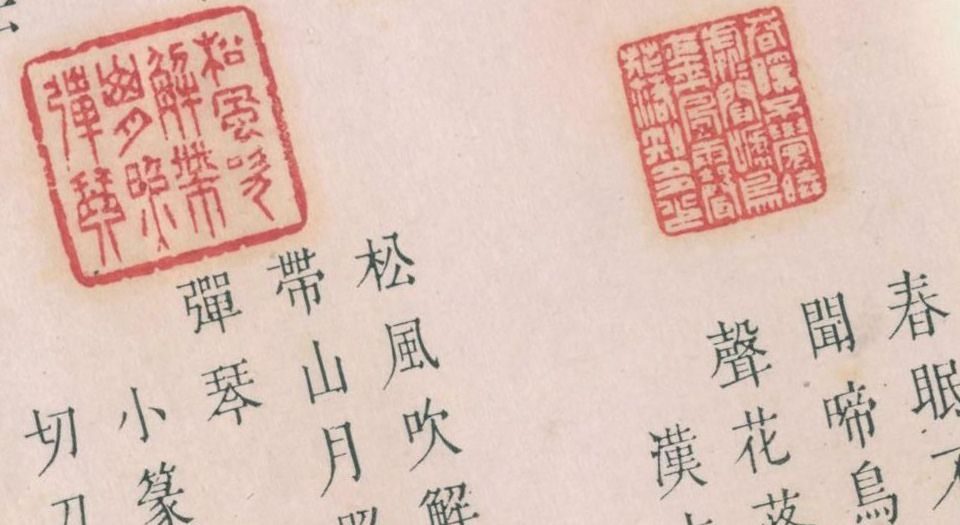 春眠不覺曉
處處聞啼鳥
夜來風雨聲
花落知多少
春眠不
聞啼鳥
聲花落
漢
松風吹
解帶
山月照
彈琴
松風吹解
帶山月照
彈琴
小篆
切刀